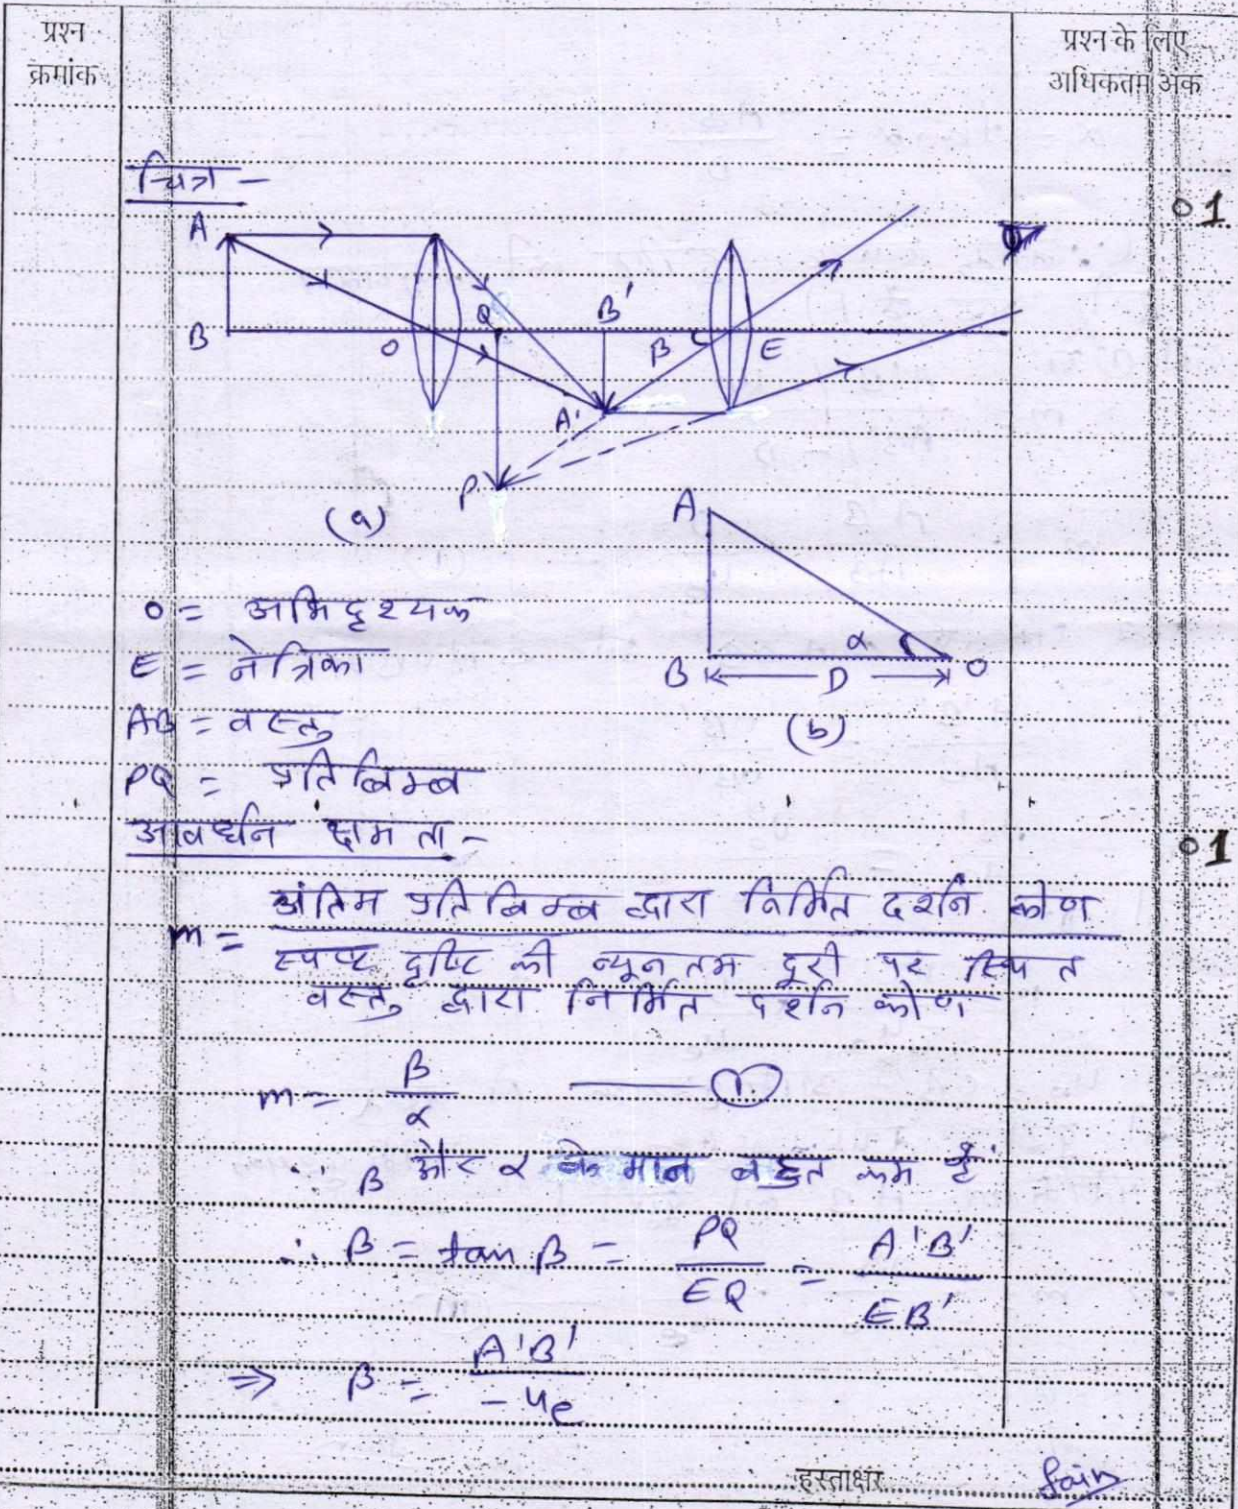 प्रश्न क्रमांक
प्रश्न के लिए अधिकतम अंक
चित्र -
01
A
B
O
Q
B'
β
E
A'
P
(a)
A
α
B
D
O
(b)
O = अभिदृश्यक
E = नेत्रिका
AB = वस्तु
PQ = प्रतिबिम्ब
आवर्धन क्षमता -
01
m = अंतिम प्रतिबिम्ब द्वारा निर्मित दर्शन कोण
स्पष्ट दृष्टि की न्यूनतम दूरी पर स्थित
वस्तु द्वारा निर्मित दर्शन कोण
m = β / α — (1)
∵ β और α के मान बहुत कम हैं
∴ β = tan β = PQ / EQ = A'B' / EB'
⇒ β = A'B' / -ue
हस्ताक्षर